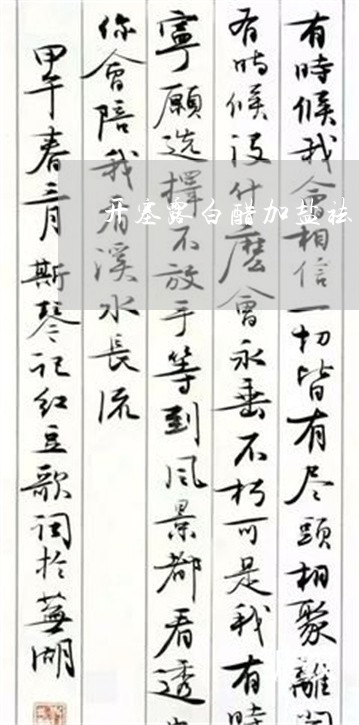 有時候我会相信一切皆有尽頭相聚離開
有時候没什麽會永垂不朽可是我有時
寧願选擇不放手等到风景都看透
你會陪我看溪水長流
甲午春三月斯琴记红豆歌词於蕪湖
开塞露白醋加盐祛